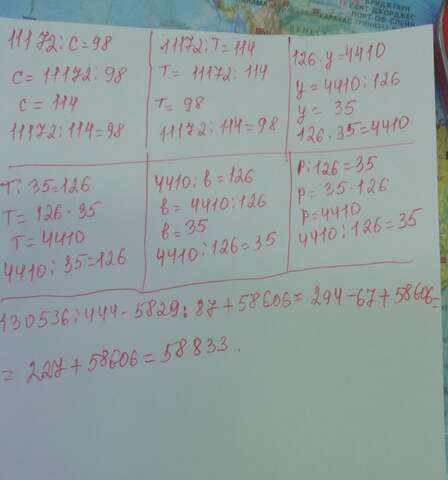 БРИДЖТАУН
СЕНТ-ДЖОРДЖЕС
ПОРТ-ОФ-СПЕЙН
КАРАКАС
11172:с=98
с=11172:98
с=114
11172:114=98
11172:т=114
т=11172:114
т=98
11172:114=98
126·у=4410
у=4410:126
у=35
126·35=4410
т:35=126
т=126·35
т=4410
4410:35=126
4410:в=126
в=4410:126
в=35
4410:126=35
р:126=35
р=35·126
р=4410
4410:126=35
130536:444-5829:87+58606=294-67+58606=
=227+58606=58833.